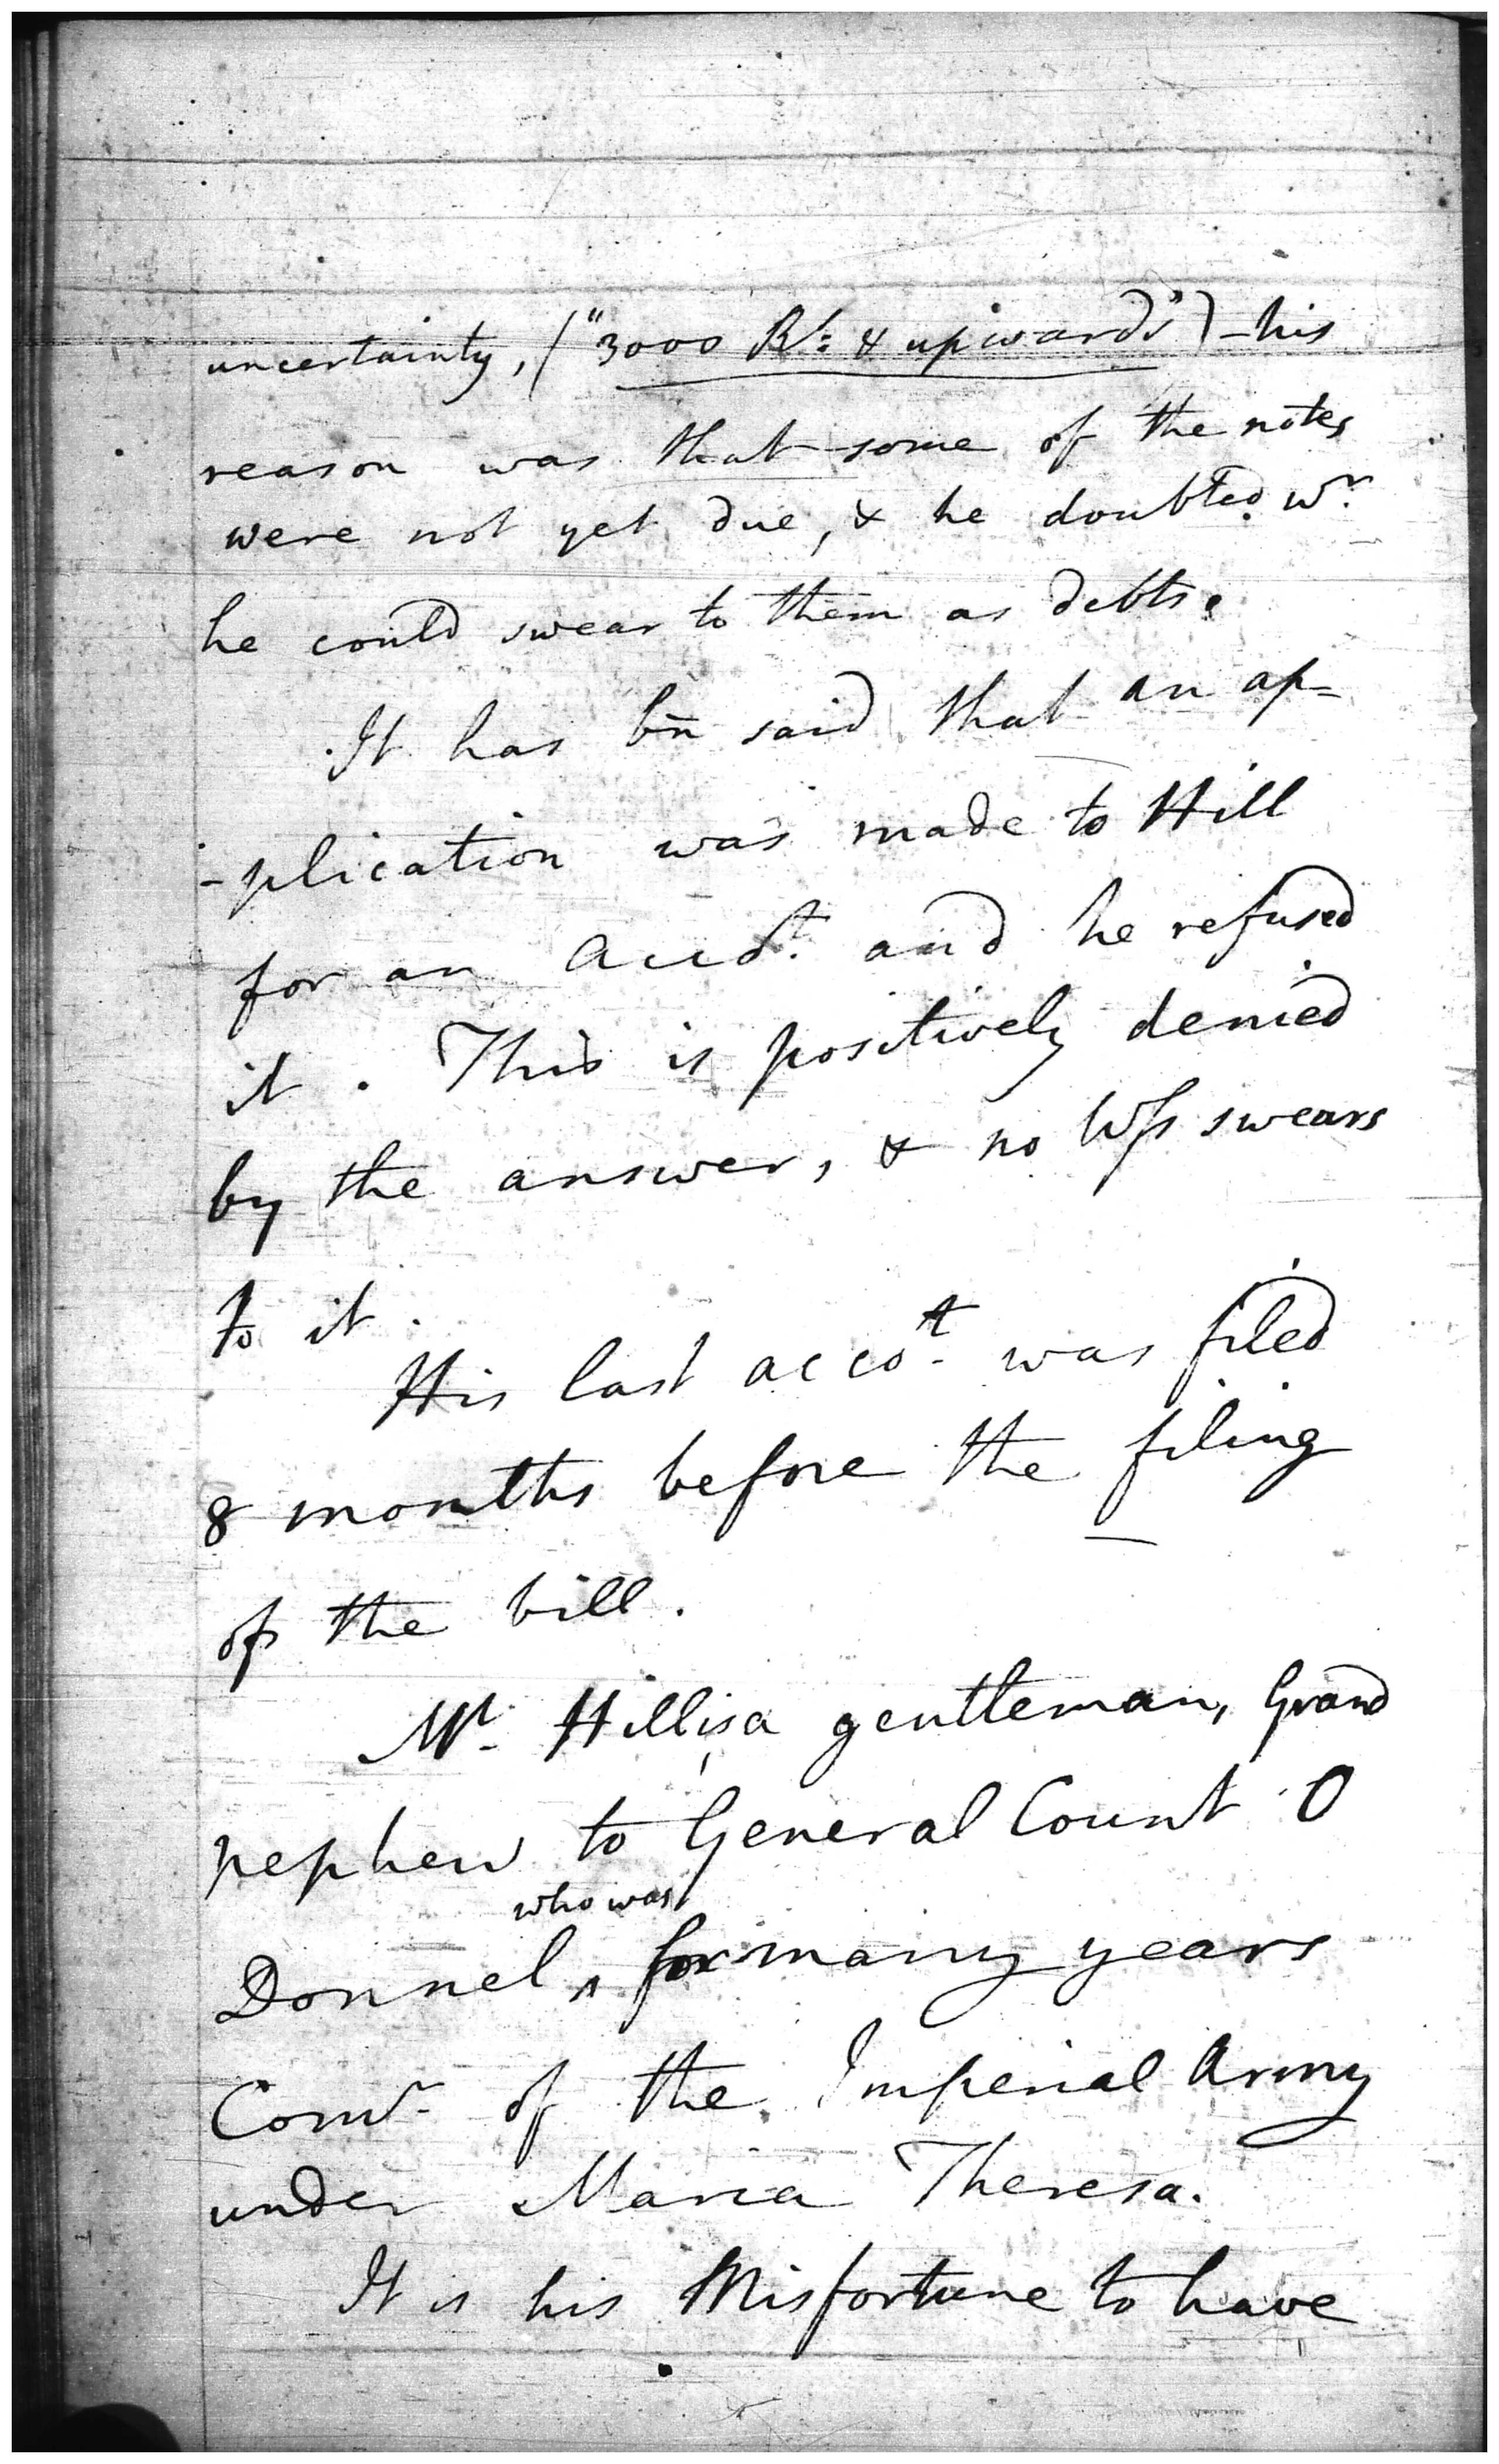 uncertainty, ("3000 Rs: & upwards") – his
reason was that some of the notes
were not yet due, & he doubted wr.
he could swear to them as debts.
It has bn said that an ap=
-plication was made to Hill
for an Accot. and he refused
it. This is positively denied
by the answer, & no Wss swears
to it.
His last accot. was filed
8 months before the filing
of the bill.
Mr. Hill is a gentleman, Grand
nephew to General Count O
who was
Donnel ^ for many years
Comr. of the Imperial Army
under Maria Theresa.
It is his Misfortune to have